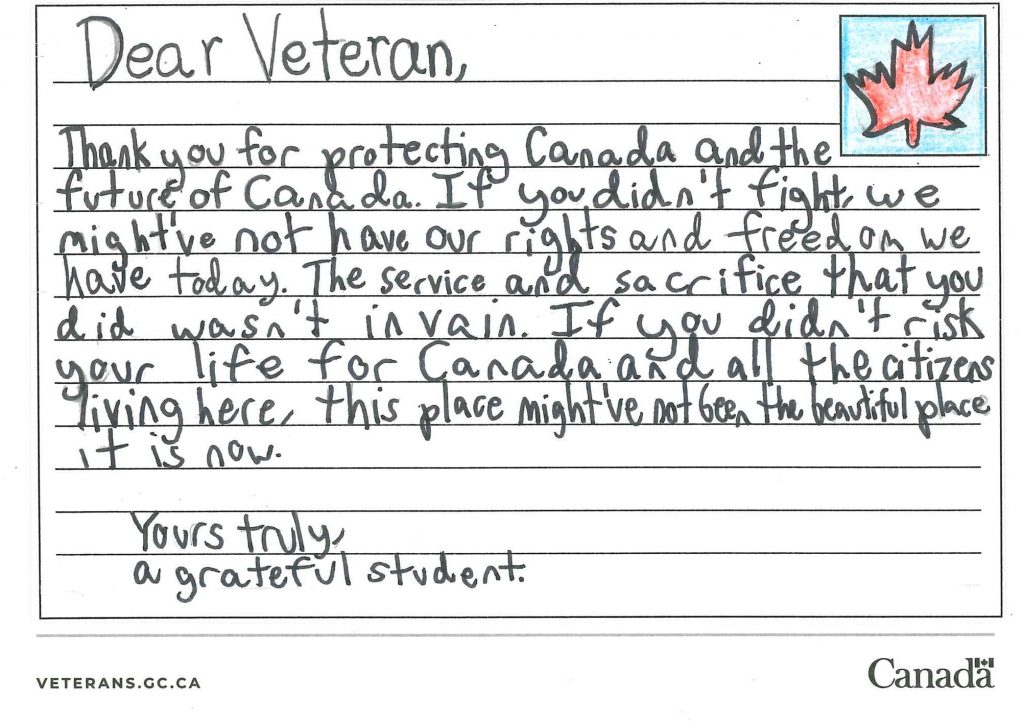 Dear Veteran,
Thank you for protecting Canada and the
future of Canada. If you didn't fight, we
might've not have our rights and freedom we
have today. The service and sacrifice that you
did wasn't in vain. If you didn't risk
your life for Canada and all the citizens
living here, this place might've not been the beautiful place
it is now.
Yours truly,
a grateful student.
VETERANS.GC.CA
Canada